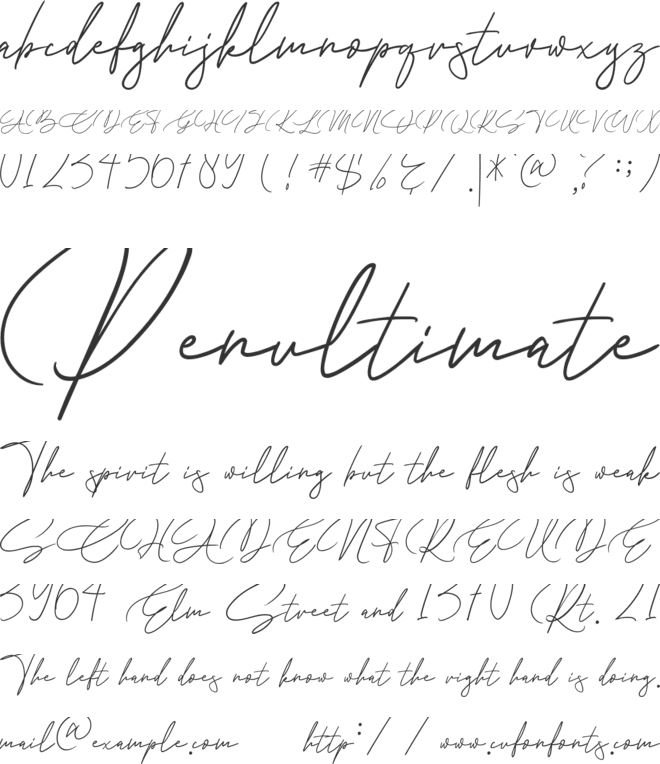 abcdefghijklmnopqrstuvwxyz
ABCDEFGHIJKLMNOPQRSTUVWX
0123456789 (!#$%&/.|*@,?:;)
Penultimate
The spirit is willing but the flesh is weak
SCHADENFREUDE
3964 Elm Street and 1370 Rt. 21
The left hand does not know what the right hand is doing.
mail@example.com http://www.cufonfonts.com